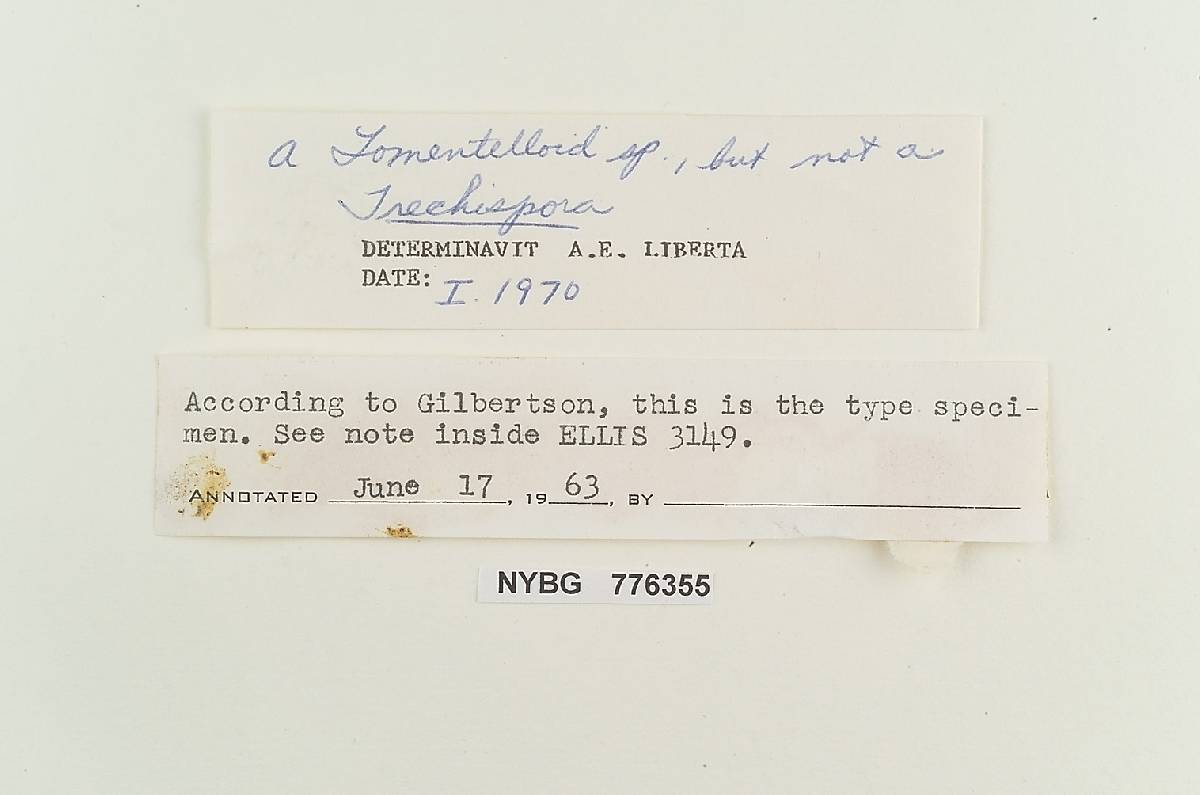 a Tomentelloid sp., but not a
Trechispora
DETERMINAVIT A.E. LIBERTA
DATE: I. 1970
According to Gilbertson, this is the type speci-
men. See note inside ELLIS 3149.
ANNOTATED June 17, 1963, BY
NYBG 776355